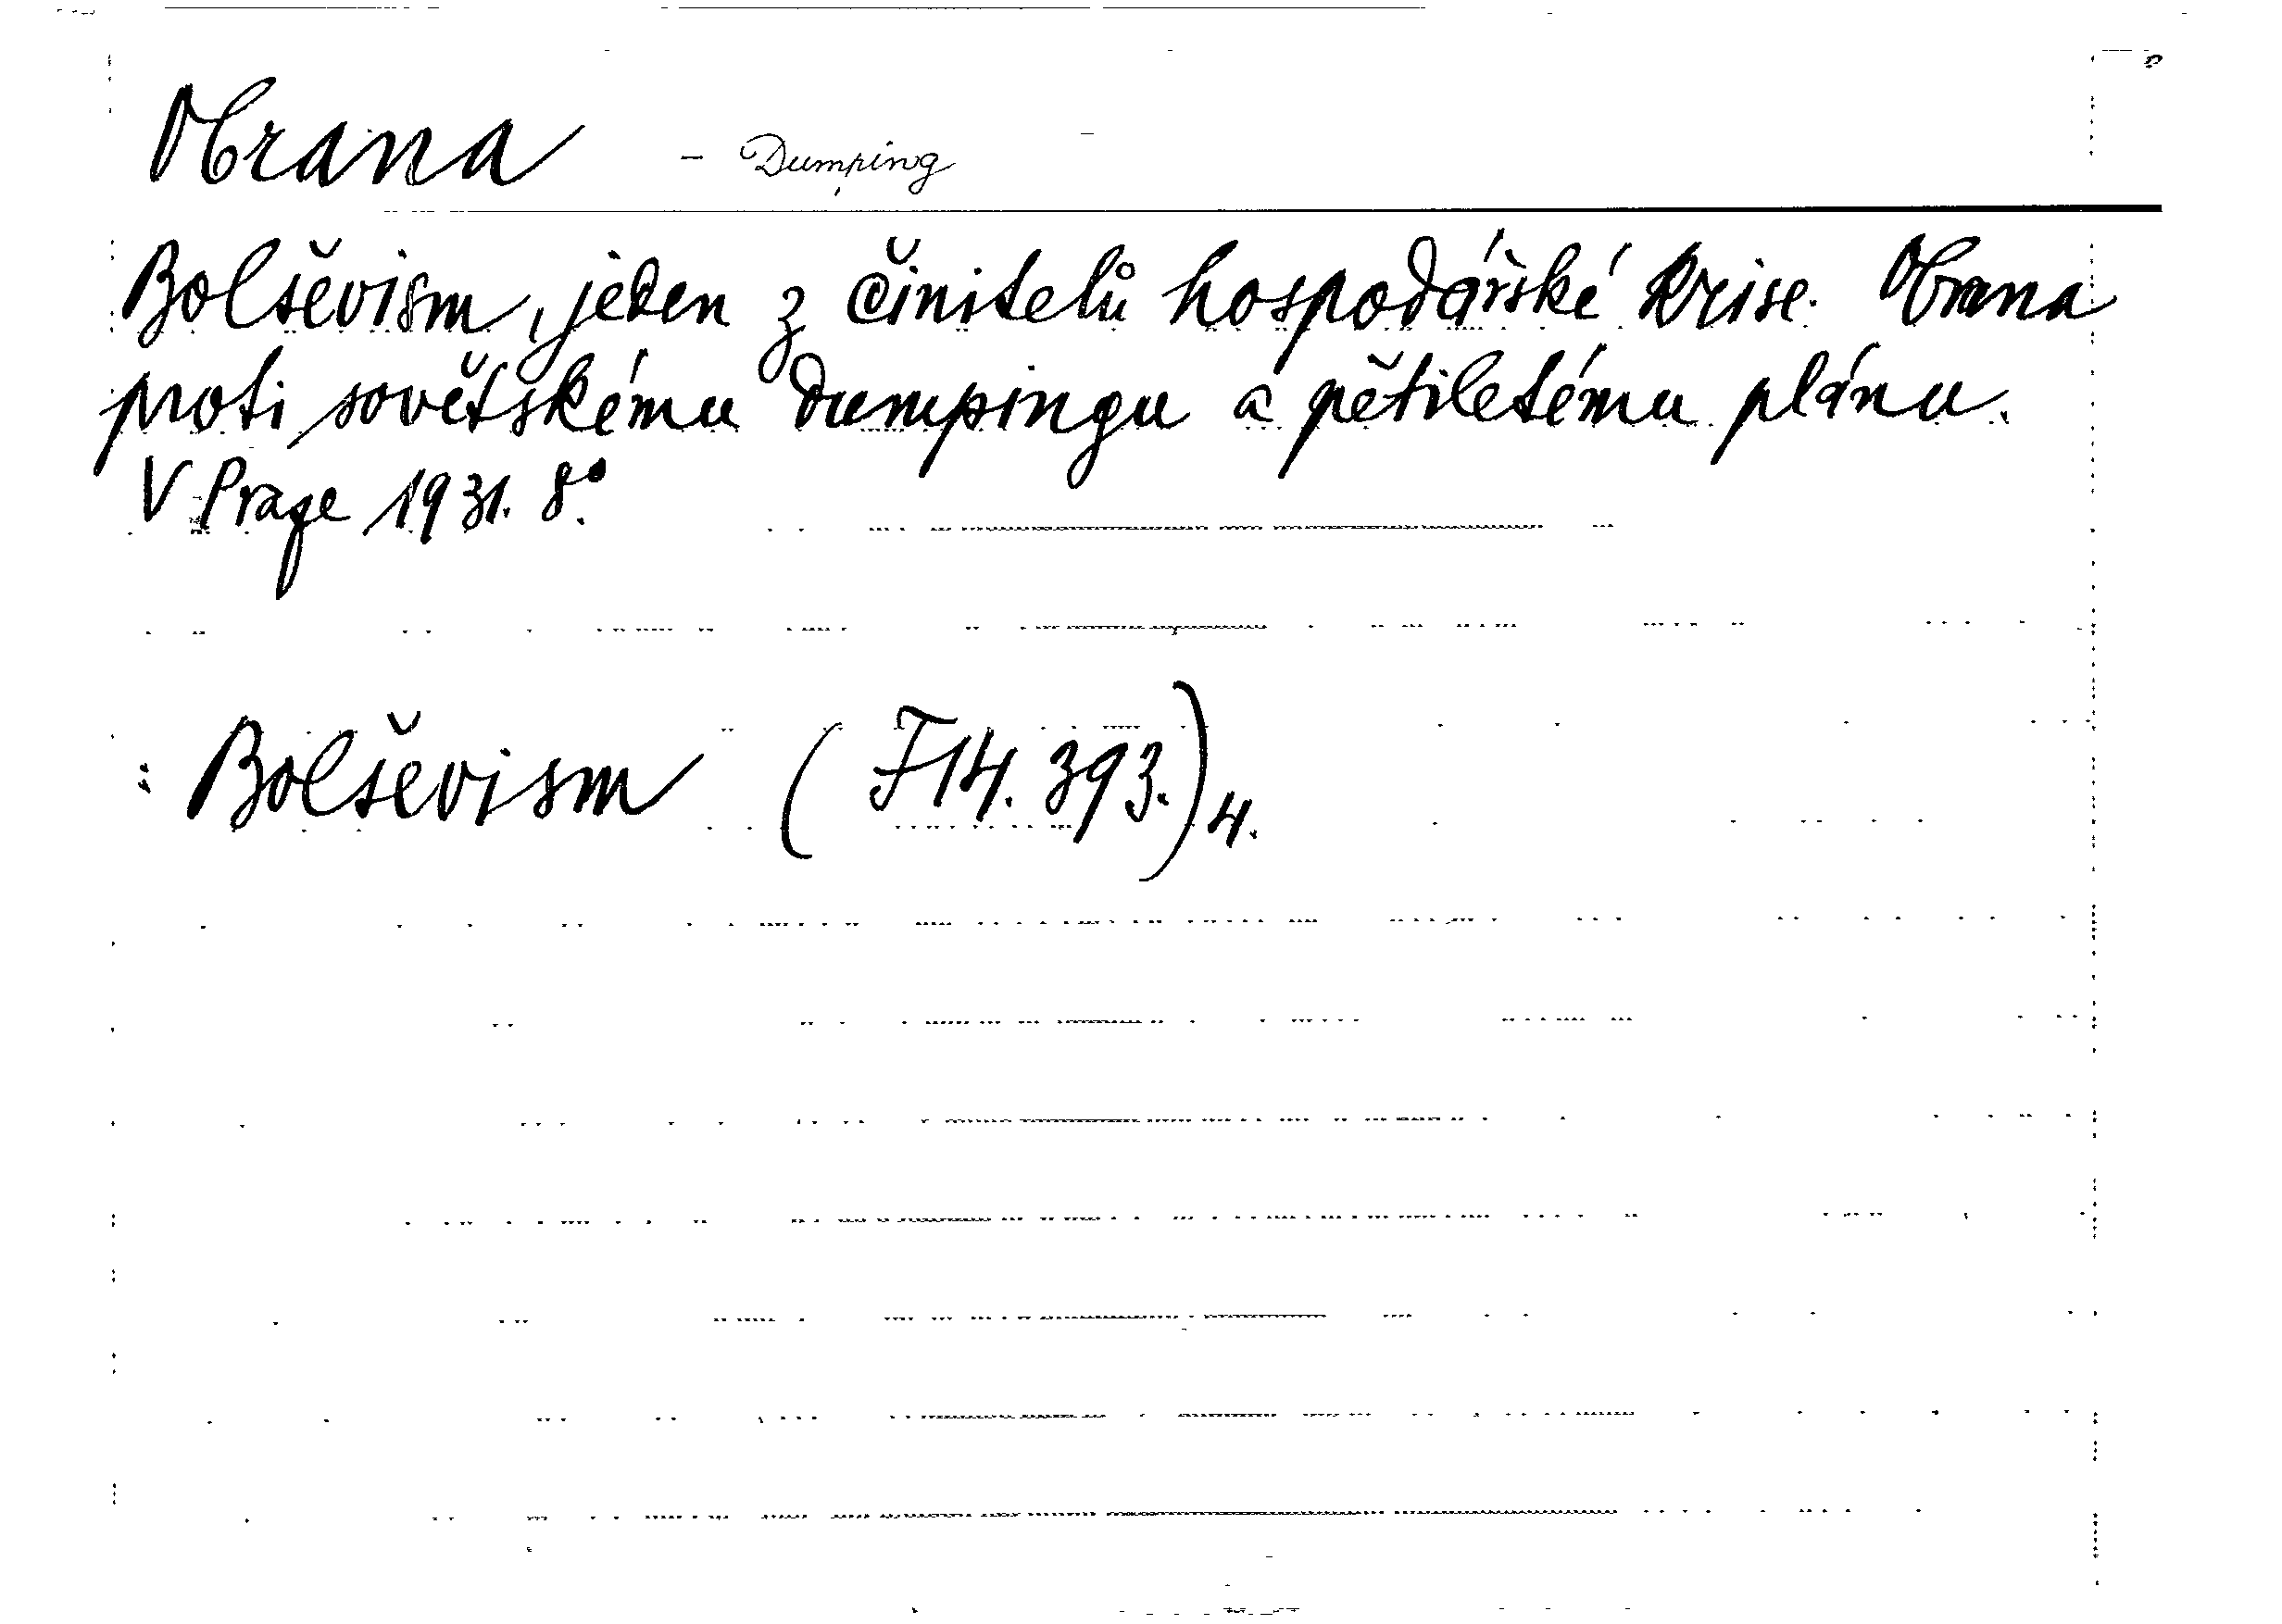 Obrana - Dumping
Bolševism, jeden z činitelů hospodářské krise. Obrana
proti sovětskému dumpingu a pětiletému plánu.
V Praze 1931. 8°.
: Bolševism (F14.393.)4.